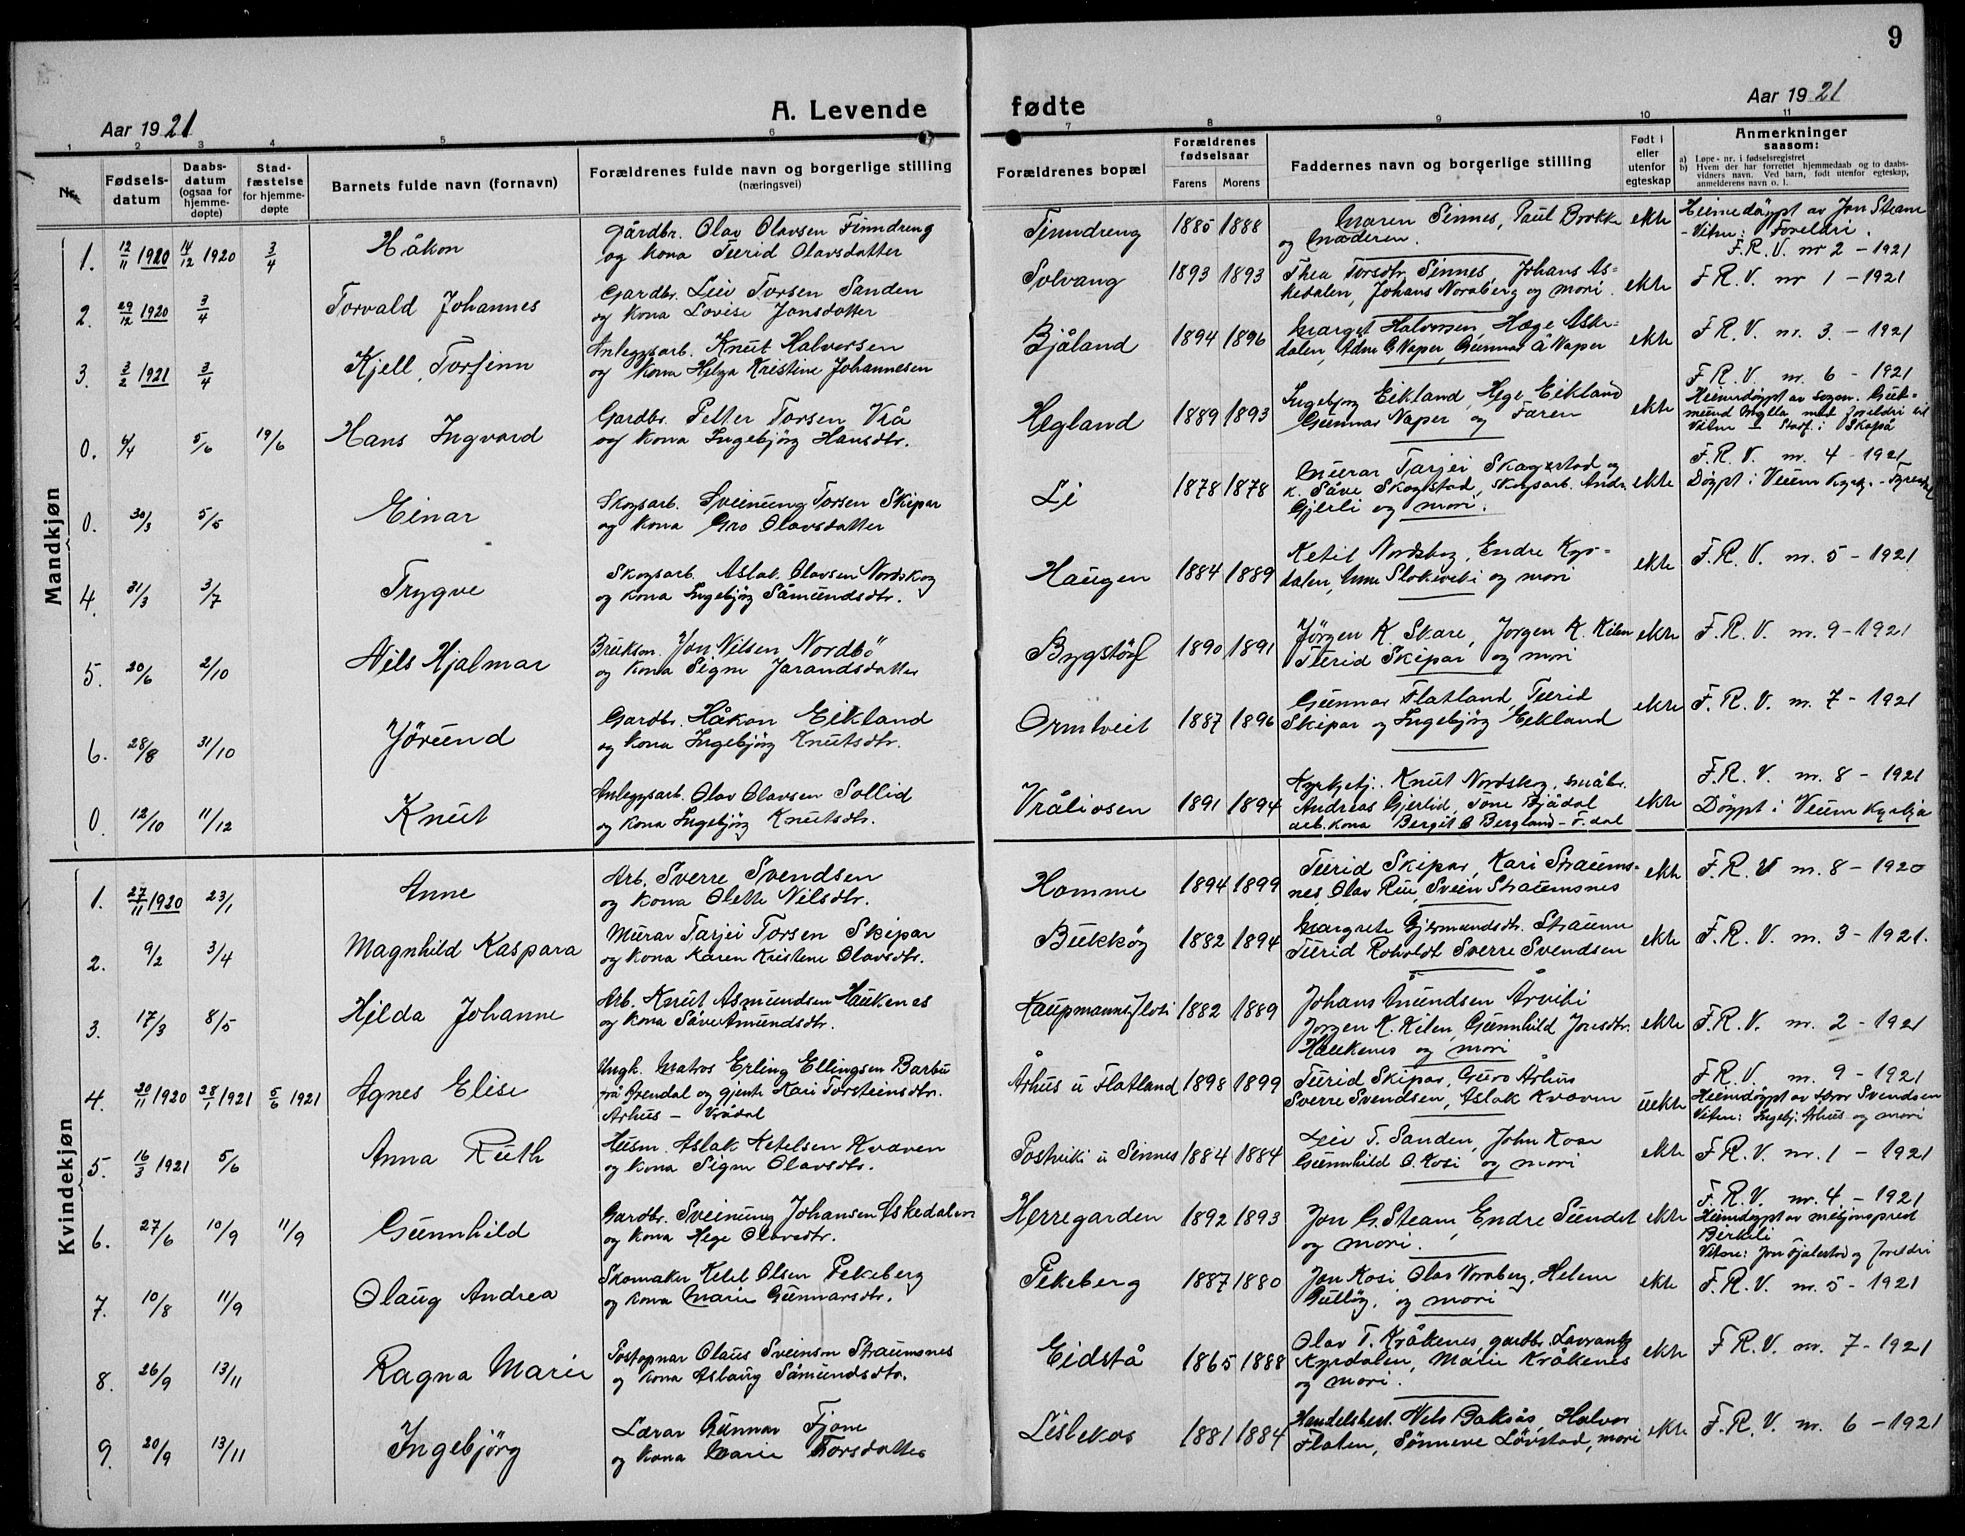 9
A. Levende fødte
Aar 1921
Aar 1921
1 2 3 4 5 6 7 8 9 10 11
Nr.
Fødsels-datum
Daabs-datum (ogsaa for hjemme-døpte)
Stad-fæstelse for hjemme-døpte
Barnets fulde navn (fornavn)
Forældrenes fulde navn og borgerlige stilling (næringsvei)
Forældrenes bopæl
Forældrenes fødselsaar
Farens Morens
Faddernes navn og borgerlige stilling
Født i eller utenfor egteskap
Anmerkninger saasom:
a) Løpe-nr. i fødselsregistret
b) Hvem der har forrettet hjemmedaab og to daabs-vidners navn. Ved barn, født utenfor egteskap, anmelderens navn o. l.
Mandkjøn
1. 12/11 1920 14/12 1920 3/4 Håkon
Gårdbr. Olav Olavsen Finndreng
og kona Turid Olavsdatter
Finndreng 1885 1888
Maren Sinnes, Paul Brokke
og Moderen.
ekte
Heimedöypt av Jon Steane
- Vitne: Foreldri.
F. R. V. nr 2 - 1921
2. 29/12 1920 3/4 Torvald Johannes
Gardbr. Leiv Torsen Sanden
og kona Lovise Jonsdatter
Solvang 1893 1893
Thea Torsdtr. Sinnes, Johans As-
kedalen, Johans Noraberg og mori.
ekte
F. R. V. nr 1 - 1921
3. 3/2 1921 3/4 Kjell, Torfinn
Anleggsarb. Knut Halvorsen
og kona Helga Kristine Johannesen
Bjåland 1894 1896
Marget Halvorsen, Hæge Aske-
dalen, Adne G. Naper, Gunnar Å Naper
ekte
F. R. V. nr. 3. - 1921
0. 4/4 5/6 19/6 Hans Ingvard
Gardbr. Petter Torsen Vrå
og kona Ingebjörg Hansdtr.
Hegland 1889 1893
Ingebjörg Eikland, Hege Eikland
Gunnar Naper og Faren
ekte
F. R. V. nr. 6 - 1921
Heimdöypt av sogn.
mund med foreldri til
Vitne - Stadf. i Skafså
0. 30/3 5/5 Einar
Skogsarb. Sveinung Torsen Skipar
og kona Gro Olavsdatter
Li 1878 1878
Murar Tarjei Skogstad og
k. Såve Skogstad, skogsarb. Andr.
Gjerli og mori.
ekte
F. R. V. nr. 4 - 1921
Döypt i Veum Kyrkj.
4. 31/3 3/7 Trygve
Skogsarb. Aslak Olavsen Nordskog
og kona Ingebjörg Såmundsdtr.
Haugen 1884 1889
Ketil Nordskog, Endre Kyr-
dalen, Anne Slokvik og mori
ekte
F. R. V. nr. 5 - 1921
5. 20/6 2/10 Nils Hjalmar
Bruksm. Jon Nilsen Nordbö
og kona Signe Jarandsdatter
Bygstöyl 1890 1891
Jörgen K. Skare, Jorgen K. Kilen
Turid Skipar og mori
ekte
F. R. V. nr. 9 - 1921
6. 28/8 31/10 Jörund
Gardbr. Håkon Eikland
og kona Ingebjörg Knutsdtr.
Ormtveit 1887 1896
Gunnar Flatland, Turid
Skipar og Ingebjörg Eikland
ekte
F. R. V. nr. 7 - 1921
0. 12/10 11/12 Knut
Anleggsarb. Olav Olavsen Sollid
og kona Ingebjörg Knutsdtr.
Vråliosen 1891 1894
Kyrkjetj. Knut Nordskog, småbr.
Andreas Gjerlid, Tone Fjådal
arb.kona Bergit O Bergland - F.dal
ekte
F. R. V. nr. 8 - 1921
Döypt i Veum Kyrkja
Kvindekjøn
1. 27/11 1920 23/1 Anne
Arb. Sverre Svendsen
og kona Olette Nilsdtr.
Homme 1894 1899
Turid Skipar, Kari Straums-
nes, Olav Rui, Svein Straumsnes
ekte
F. R. V nr. 8 - 1920
2. 9/2 3/4 Magnhild Kaspara
Murar Tarjei Torsen Skipar
og kona Karen Kristene Olavsdtr.
Bukköy 1882 1894
Margrete Gjermundsdtr. Straume
Turid Roholdt Sverre Svendsen
ekte
F. R. V. nr. 3 - 1921.
3. 17/3 8/5 Hilda Johanne
Arb. Knut Asmundsen Haukenes
og kona Såve Åmundsdtr.
1882 1889
Johans Åmundsen Årviki
Jorgen K. Kilen, Gunnhild Jonsdtr.
Haukenes og mori
ekte
F. R. V. nr. 2 - 1921
4. 20/11 1920 28/1 1921 5/6 1921 Agnes Elise
Ungk. Matros Erling Ellingsen Barbu
frå Arendal og gjenta Kari Torsteinsdtr.
Århus - Vrådal
Århus u Flatland 1898 1899
Turid Skipar, Guro Århus
Sverre Svendsen, Aslak Kvaven
uekte
F. R. V. nr. 9 - 1921
Heimdöypt av Svendsen
Vitne: Ingebj. Århus og mori
5. 16/3 1921 5/6 Anna Ruth
Husm. Aslak Ketelsen Kvaven
og kona Signe Olavsdtr.
Postviki u Sinnes 1884 1884
Leiv T. Sanden, John Kosi
Gunnhild O. Kosi og mori
ekte
F. R. V. nr. 1 - 1921
6. 27/6 10/9 11/9 Gunnhild
Gardbr. Sveinung Johansen Askedalen
og kona Hege Olavsdtr.
Herregarden 1892 1893
Jon G. Steane, Endre Sundet
og mori.
ekte
F. R. V. nr. 4 - 1921
Heimdöypt av misjonsprest
Birkeli
Vitne: Jon Fjalestad og foreldri
7. 10/8 11/9 Olaug Andrea
Skomaker Ketel Olsen Pekeberg
og kona Marie Gunnarsdtr.
Pekeberg 1887 1880
Jon Kosi Olav Noraberg, Helene
Gulløy, og mori
ekte
F. R. V. nr. 5 - 1921
8. 26/9 13/11 Ragna Marie
Postopnar Olaus Sveinson Straumsnes
og kona Aslaug Såmundsdtr.
Eidstå 1865 1888
Olav T. Kråkenes, gardbr. Lavrants
Kyrdalen, Marie Kråkenes
og mori.
ekte
F. R. V. nr. 7 - 1921
9. 20/9 13/11 Ingebjörg
Lærar Gunnar Fjone
og kona Marie Torsdatter
Lislekos 1881 1884
Handelsbest. Nils Baksås, Halvor
Flaten, Sönneve Lövstad, mori
ekte
F. R. V. nr. 6 - 1921